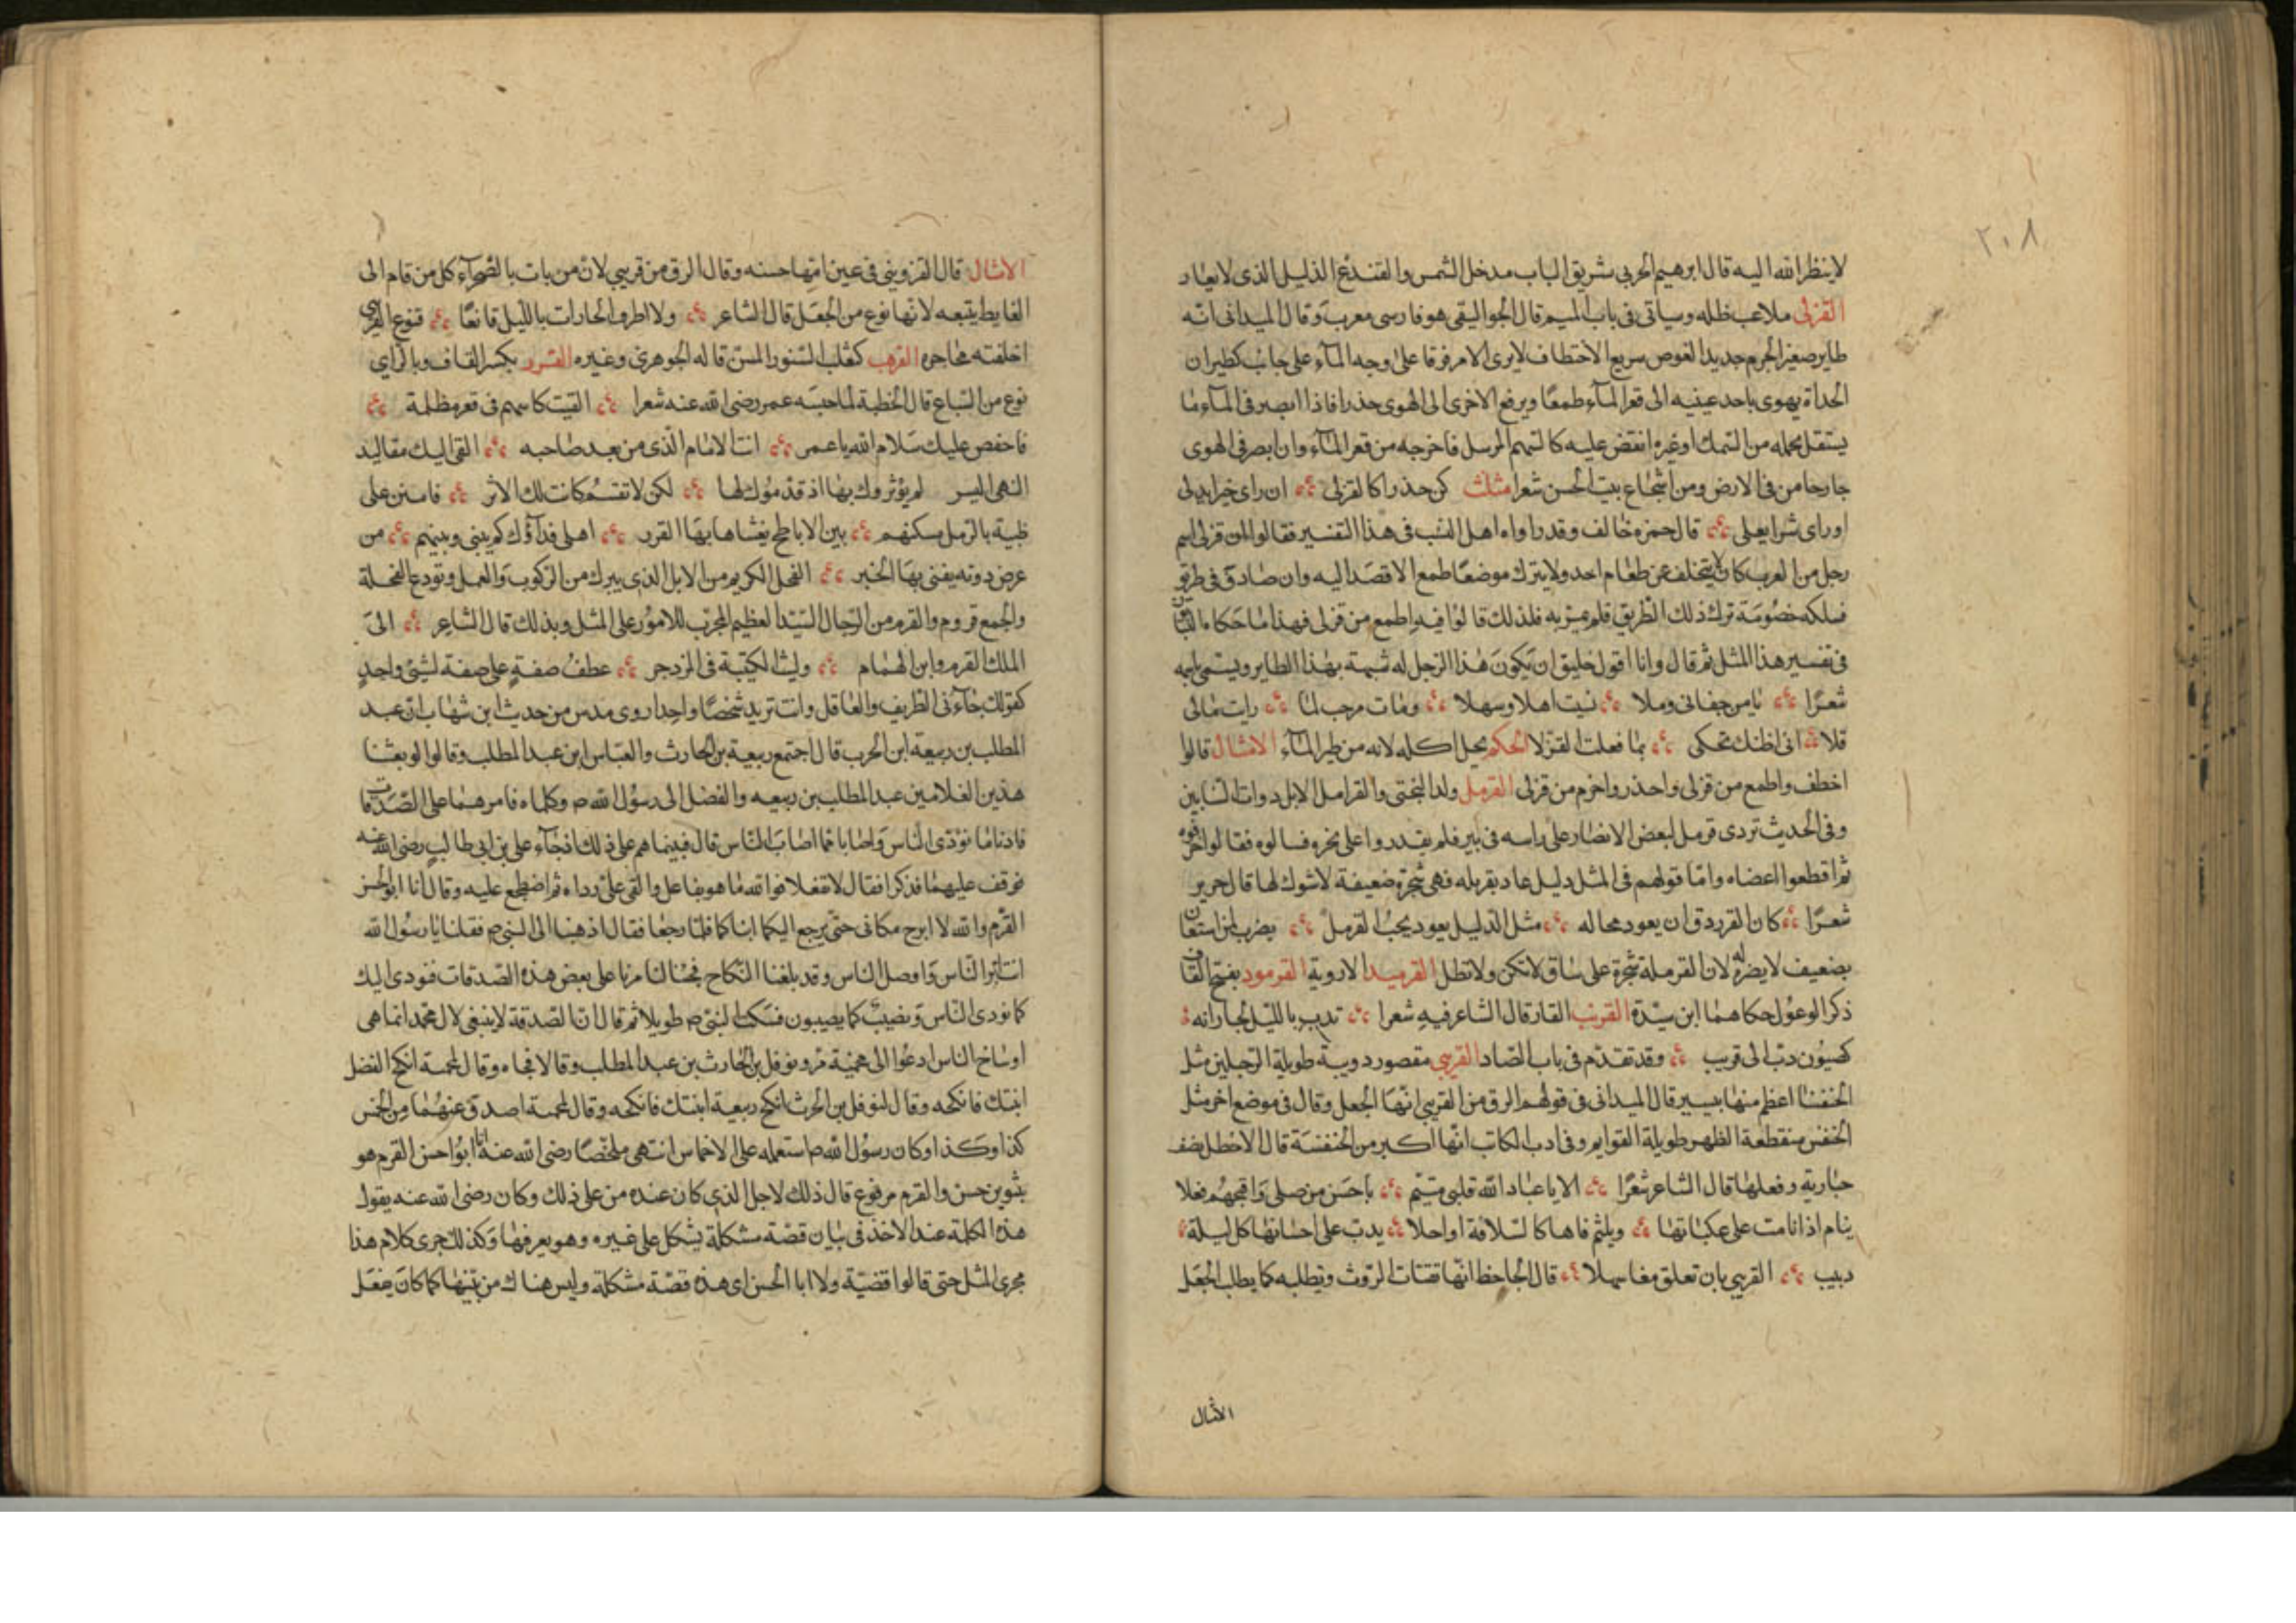 ٢٠٨
لاينظر الله اليه قال ابرهيم الحربى شريق الباب مدخل الشمس والقندع الذليل الذى لايغار
القرلى ملاعب ظله وسياتى فى باب الميم قال الجواليقى هو فارسى معرب وقال الميدانى انه
طاير صغير الجرم حديد الغوص سريع الاختطاف لايرى الا مرفرفا على وجه المآء على جانب كطيران
الحداة يهوى باحد عينيه الى قعر المآء طمعًا ويرفع الاخرى الى الهوى حذرا فاذا ابصر فى المآء ما
يستقل بحمله من السمك او غيره انقض عليه كالسهم المرسل فاخرجه من قعر المآء وان ابصر فى الهوى
جارحا من فى الارض ومن اشجاع بيت الحسن شعرا مثلث كن حذرا كالقرلى ان راى خيرا تدلى
او راى شرا يعلى قال حمزه خالف وقد رواه اهل النسب فى هذا التفسير فقالوا ان قرلى اسم
رجل من العرب كان لا يتخلف عن طعام احد ولايترك موضعًا طمع الا قصد اليه وان صادق فى طريق
فسلكه خصومة ترك ذلك الطريق فلم يمر به فلذلك قالوا فيه اطمع من قرلى فهذا ما حكاه
فى تفسير هذا المثل ثم قال وانا اقول خليق ان يكون هذا الرجل له شبه بهذا الطاير ويسمى باسمه
شعرًا يا من جفانى وملا نسيت اهلا وسهلا ومات مرحب لما رايت مالى
قلا انى اظنك تحكى بما فعلت القرلا الحكم يحل اكله لانه من طير المآء الامثال قالوا
اخطف واطمع من قرلى واحذر واخزم من قرلى القرمل ولد البختى والقرامل الابل ذوات السنامين
وفى الحديث تردى قرمل لبعض الانصار على راسه فى بير فلم يقدروا على نحره فسالوه فقال
ثم اقطعوا اعضاه واما قولهم فى المثل ذليل عاد بقرمله فهى شجرة ضعيفة لاشوك لها قال جرير
شعرًا كان القرزدق ان يعود بخاله مثل الذليل يعود تحت القرمل يضرب لمن استعان
بضعيف لايضره له لان القرملة شجرة على ساق لاتكن ولاتظل القرميد الاروية القرمود بفتح القاف
ذكر الوعول حكاهما ابن سيدة القرنب الفار قال الشاعر فيه شعرا تدب بالليل لجاراته
كضيون دب الى قرنب وقد تقدم فى باب الضاد القرنبى مقصور دويبة طويلة الرجلين مثل
الخنفسا اعظم منها بيسير قال الميدانى فى قولهم الزق من القرنبى انها الجعل وقال فى موضع اخر مثل
الخنفس منقطعة الظهر طويلة القوايم وفى ادب الكاتب انها اكبر من الخنفسة قال الاخطل يصف
جاريه وفعلها قال الشاعر شعرًا الا يا عباد الله قلبى متيم باحسن من صلى واقبحهم فعلا
ينام اذا نامت على عكناتها ويلثم فاها كالسلافة او احلا يدب على احشائها كل ليلة
دبيب القرنبى بات تعلق نقا سهلا قال الجاحظ انها تقتات الروث وتطلبه كما يطلب الجعل
الامثال
الامثال قال القزوينى فى عين امها حسنه وقال الزق من قرنبى لان من بات بالصحرآء كل من قام الى
الغايط يتبعه لانها نوع من الجعل قال الشاعر ولا اطرق الجارات بالليل قانعًا قبوع القرنبى
اخلفته محاجره القرهب كثعلب السنور المسن قاله الجوهرى وغيره القسرر بكسر القاف وبالزاى
نوع من السباع قال الحطيئة لما حبسه عمر رضى الله عنه شعرا القيت كاسبهم فى قعر مظلمة
فاحفص عليك سلام الله يا عمر انت الامام الذى من بعد صاحبه القى اليك مقاليد
النهى البشر لم يؤثروك بها اذ قدموك لها لكن لانفسهم كانت لك الاثر فامنن على
ظبية بالرمل مسكنهم بين الاباطح يغشاها بها القرر اهلى فدآؤك كم بينى وبينهم من
عرض دونه يفنى بها الخبر الفحل الكريم من الابل الذى يترك من الركوب والعمل وتودع للفحلة
والجمع قروم والقرم من الرجال السيد العظيم المجرب للامور على المثل وبذلك قال الشاعر الى
الملك القرم وابن الهمام وليث الكتيبة فى المزدحم عطف صفة على صفة لشئ واحد
كقولك جآءنى الظريف والعاقل وانت تريد شخصًا واحدا روى مدس من حديث ابن شهاب ان عبد
المطلب بن ربيعة ابن الحرب قال اجتمع ربيعة بن الحارث والعباس ابن عبد المطلب وقالوا لو بعثنا
هذين الغلامين عبد المطلب بن ربيعه والفضل الى رسول الله ص وكلماه فامرهما على الصدقات
فاديا ما تؤدى الناس واصابا مما اصاب الناس قال فبينما هم على ذلك اذ جآء على بن ابى طالب رضى الله عنه
فوقف عليهما فذكرا فقال لا تفعلا فوالله ما هو بفاعل والقى على رداءه ثم اضطجع عليه وقال انا ابو الحسن
القرم والله لا ابرح مكانى حتى يرجع اليكما ابناكما فلما رجعا فقال اذهبنا الى النبى ص فقلنا يا رسول الله
انت ابر الناس واوصل الناس وقد بلغنا النكاح فجئنا لتامرنا على بعض هذه الصدقات فنودى اليك
كما تؤدى الناس ونصيب كما يصيبون فسكت النبى ص طويلا ثم قال ان الصدقة لاينبغى لال محمد انما هى
اوساخ الناس ادعوا الى محمية ونوفل بن الحارث بن عبد المطلب وقالا فجاءه وقال لمحمية انكح الفضل
ابنتك فانكحه وقال لنوفل بن الحرث انكح ربيعة ابنتك فانكحه وقال لمحمية اصدق عنهما من الخمس
كذا وكذا وكان رسول الله ص استعمله على الاخماس انتهى ملخصًا رضى الله عنه انا ابو احسن القرم هو
بتنوين حسن والقرم مرفوع قال ذلك لاجل الذى كان عنده من على ذلك وكان رضى الله عنه يقول
هذه الكلمة عند الاخذ فى بيان قصة مشكلة يشكل على غيره وهو يعرفها وكذلك جرى كلام هذا
مجرى المثل حتى قالوا قضية ولا ابا الحسن اى هذه قصة مشكلة وليس هناك من يبينها كما كان يفعل